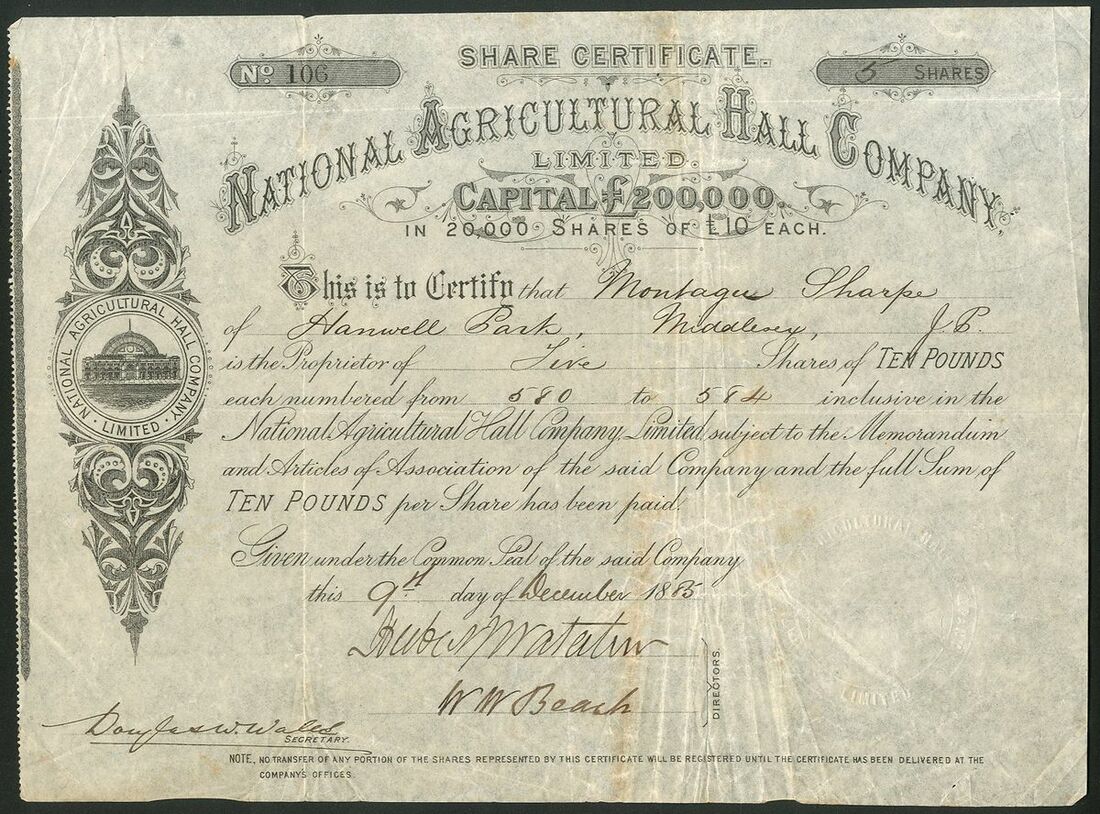 SHARE CERTIFICATE.
No 106
5 SHARES
NATIONAL AGRICULTURAL HALL COMPANY,
LIMITED.
CAPITAL £200,000.
IN 20,000 SHARES OF £10 EACH.
This is to Certify that Montague Sharpe
of Hanwell Park, Middlesex, J.P.
is the Proprietor of Five Shares of TEN POUNDS
each numbered from 580 to 584 inclusive in the
National Agricultural Hall Company, Limited, subject to the Memorandum
and Articles of Association of the said Company and the full Sum of
TEN POUNDS per Share has been paid.
Given under the Common Seal of the said Company
this 9th day of December 1885
W W Beach
DIRECTORS.
Douglas W. Walls
SECRETARY.
NOTE, NO TRANSFER OF ANY PORTION OF THE SHARES REPRESENTED BY THIS CERTIFICATE WILL BE REGISTERED UNTIL THE CERTIFICATE HAS BEEN DELIVERED AT THE
COMPANY'S OFFICES.
NATIONAL AGRICULTURAL HALL COMPANY · LIMITED ·
LIMITED